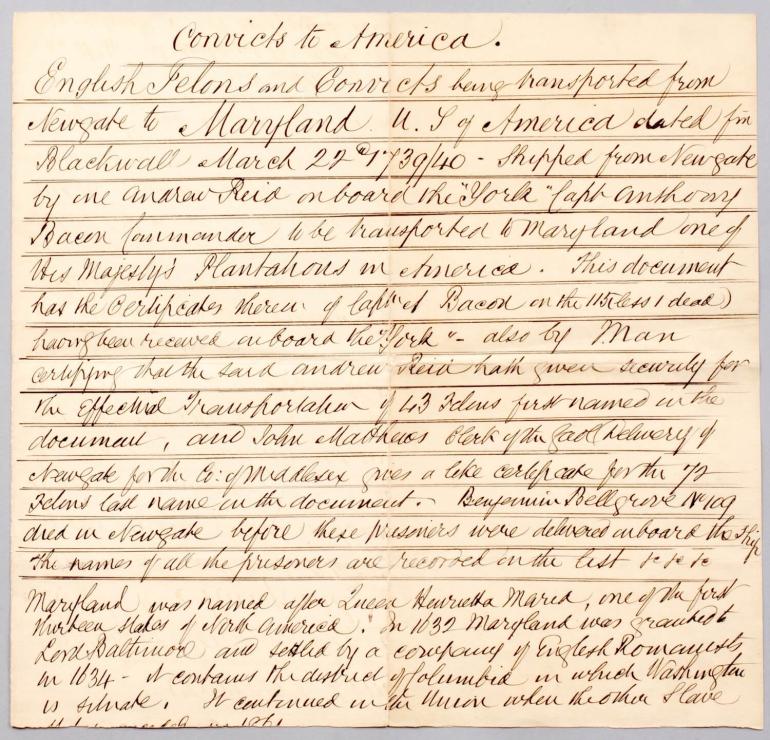 Convicts to America.
English Felons and Convicts being transported from
Newgate to Maryland U. S of America dated fm
Blackwall March 22d 1739/40 - Shipped from Newgate
by one Andrew Reid on board the "York" Capt Anthony
Bacon Commander to be transported to Maryland one of
His Majesty's Plantations in America. This document
has the Certificates therein of Captn A Bacon on the 115 (less 1 dead)
having been received on board the "York" - also by Man
certifying that the said Andrew Reid hath given security for
the Effectual Transportation of 43 Felons first named in the
document, and John Matthews Clerk of the Gaol Delivery of
Newgate for the Co: of Middlesex gives a like certificate for the 72
Felons last name in the document. - Benjamin Bellgrove No 109
died in Newgate before these prisoners were delivered on board the Ship
The names of all the prisoners are recorded on the list &c &c &c
Maryland was named after Queen Henrietta Maria, one of the first
thirteen states of North America. In 1632 Maryland was granted to
Lord Baltimore and settled by a company of English Romanists
in 1634 - it contains the district of Columbia in which Washington
is situate. It continued in the Union when the other Slave